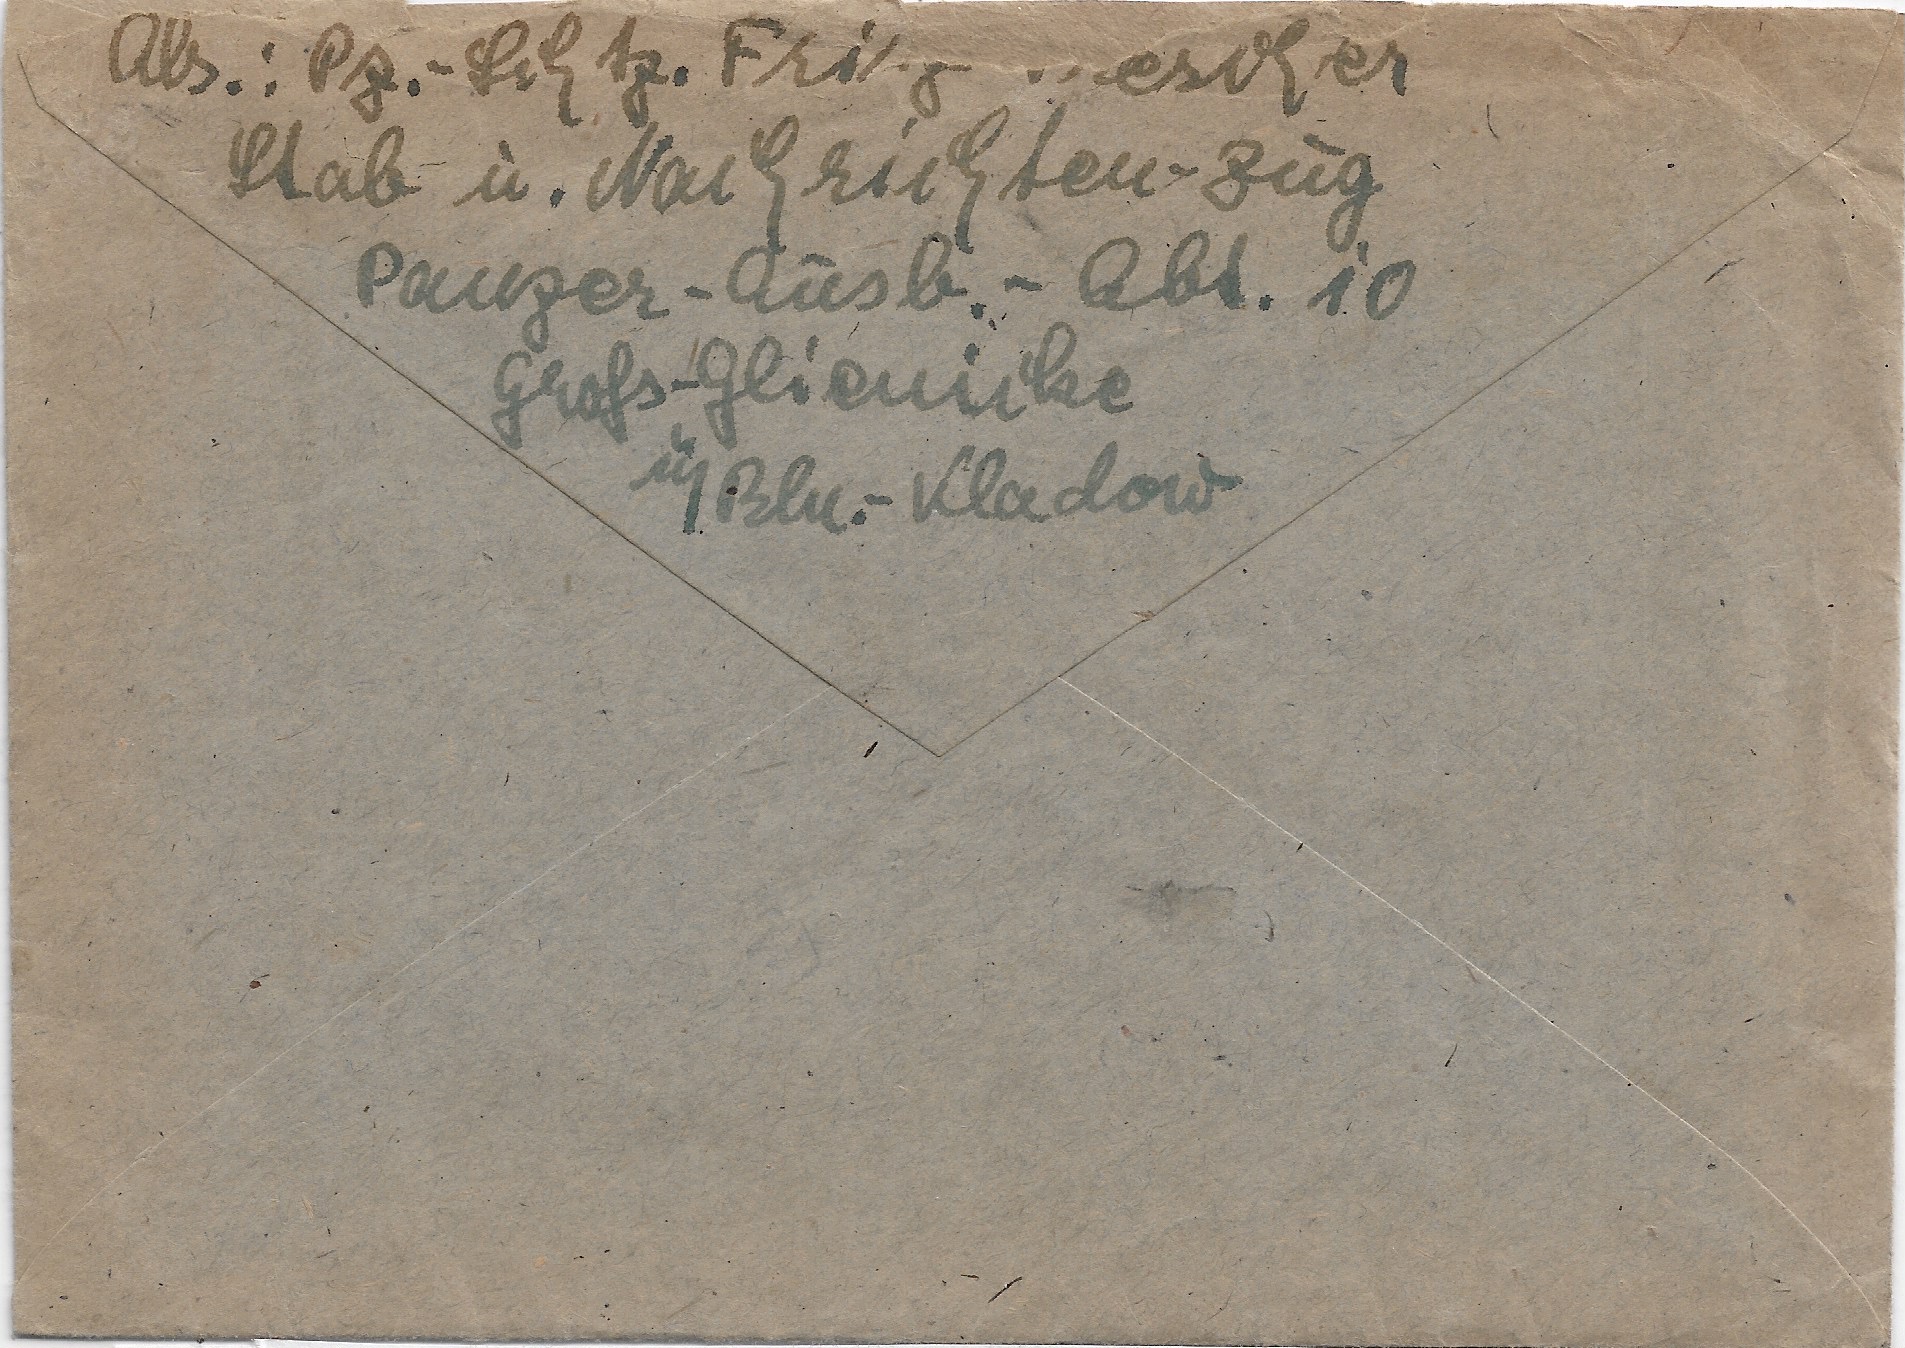 Abs.: Pz.-Schtz. Fritz
Stab u. Nachrichten-Zug
Panzer-Ausb.-Abt. 10
Groß-Glienicke
üb Bln.-Kladow